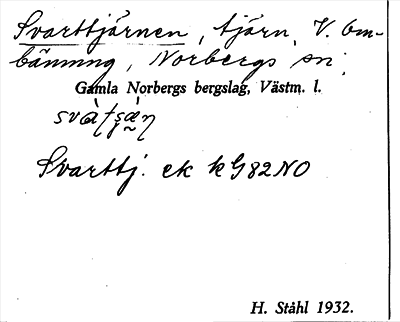 Svarttjärnen, tjärn, V. Om-
bänning, Norbergs sn,
Gamla Norbergs bergslag, Västm. l.
Svarttj. ek kG82NO
H. Ståhl 1932.